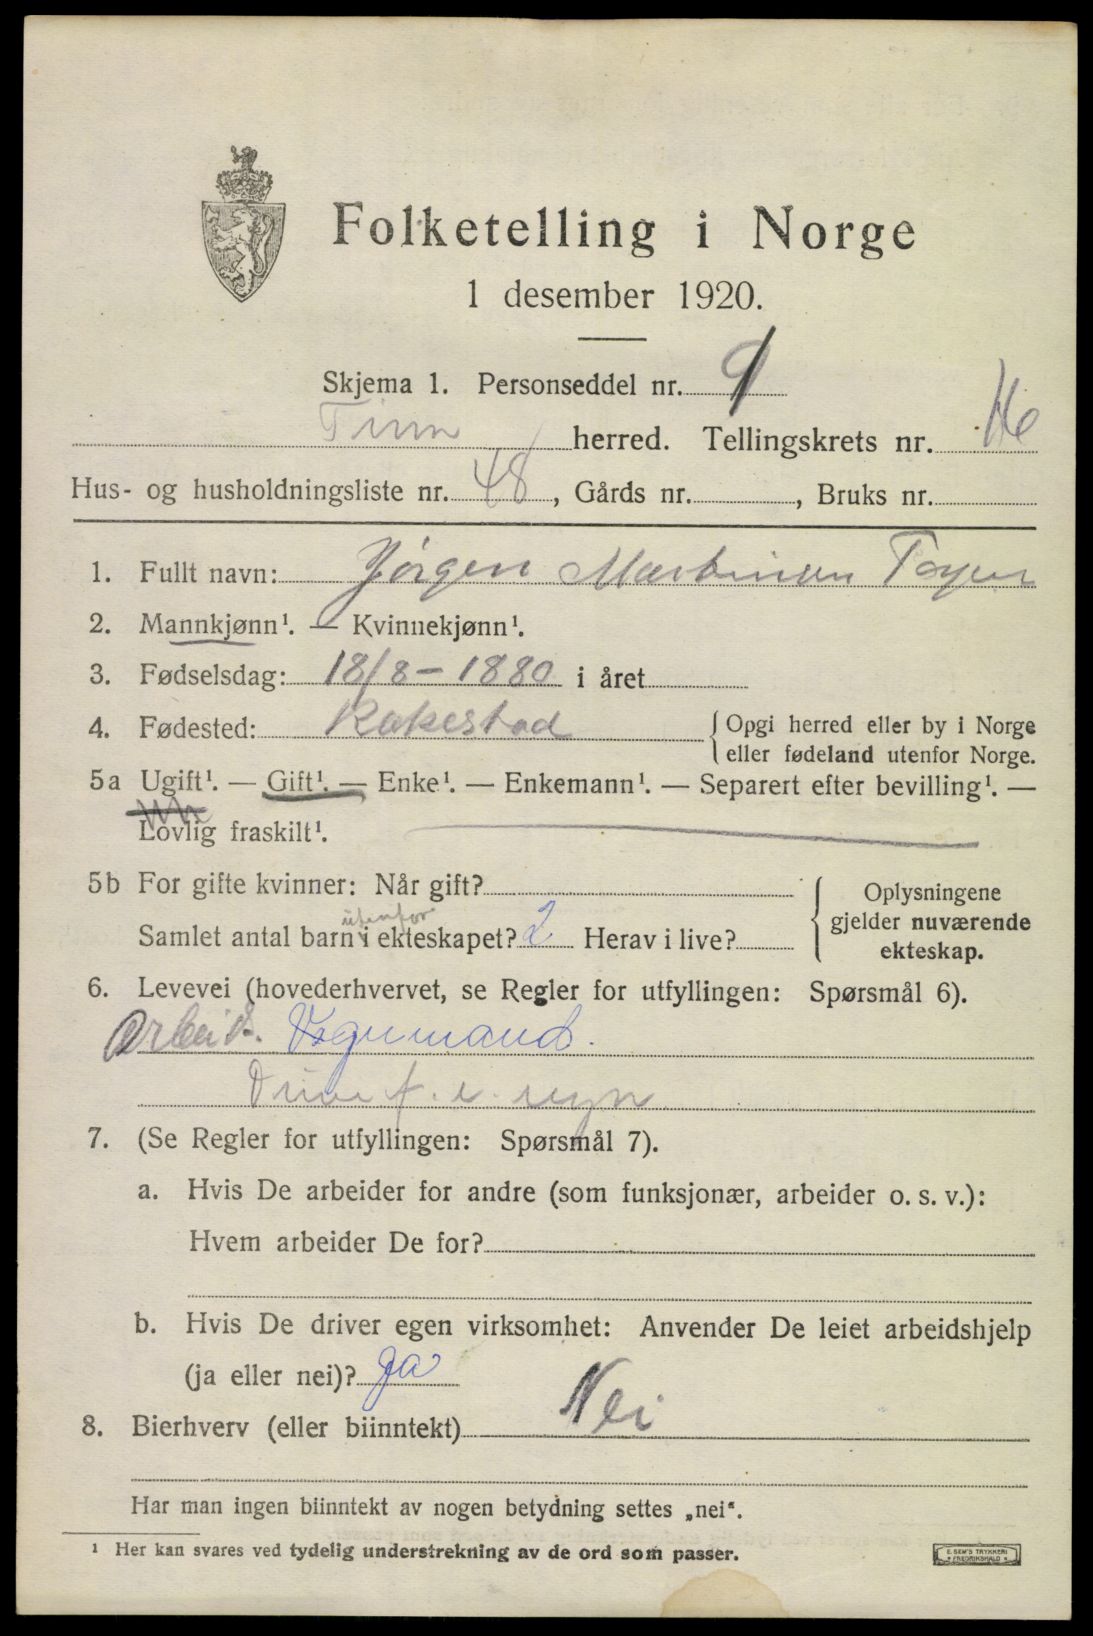 Folketelling i Norge
1 desember 1920.
Skjema 1. Personseddel nr. 9
Tinn herred. Tellingskrets nr.
Hus- og husholdningsliste nr. 48, Gårds nr. , Bruks nr.
1. Fullt navn: Jørgen Martinsen
2. Mannkjønn¹. — Kvinnekjønn¹.
3. Fødselsdag: 18/8 - 1880 i året
4. Fødested: Kokestad
{ Opgi herred eller by i Norge
eller fødeland utenfor Norge.
5a Ugift¹. — Gift¹. — Enke¹. — Enkemann¹. — Separert efter bevilling¹. —
Lovlig fraskilt¹.
5b For gifte kvinner: Når gift?
utenfor
Samlet antal barn i ekteskapet? 2 Herav i live?
{ Oplysningene
gjelder nuværende
ekteskap.
6. Levevei (hovederhvervet, se Regler for utfyllingen: Spørsmål 6).
Arbeid.
7. (Se Regler for utfyllingen: Spørsmål 7).
a. Hvis De arbeider for andre (som funksjonær, arbeider o. s. v.):
Hvem arbeider De for?
b. Hvis De driver egen virksomhet: Anvender De leiet arbeidshjelp
(ja eller nei)? Ja
8. Bierhverv (eller biinntekt) Nei
Har man ingen biinntekt av nogen betydning settes „nei“.
¹ Her kan svares ved tydelig understrekning av de ord som passer.
E. SEM'S TRYKKERI
FREDRIKSHALD